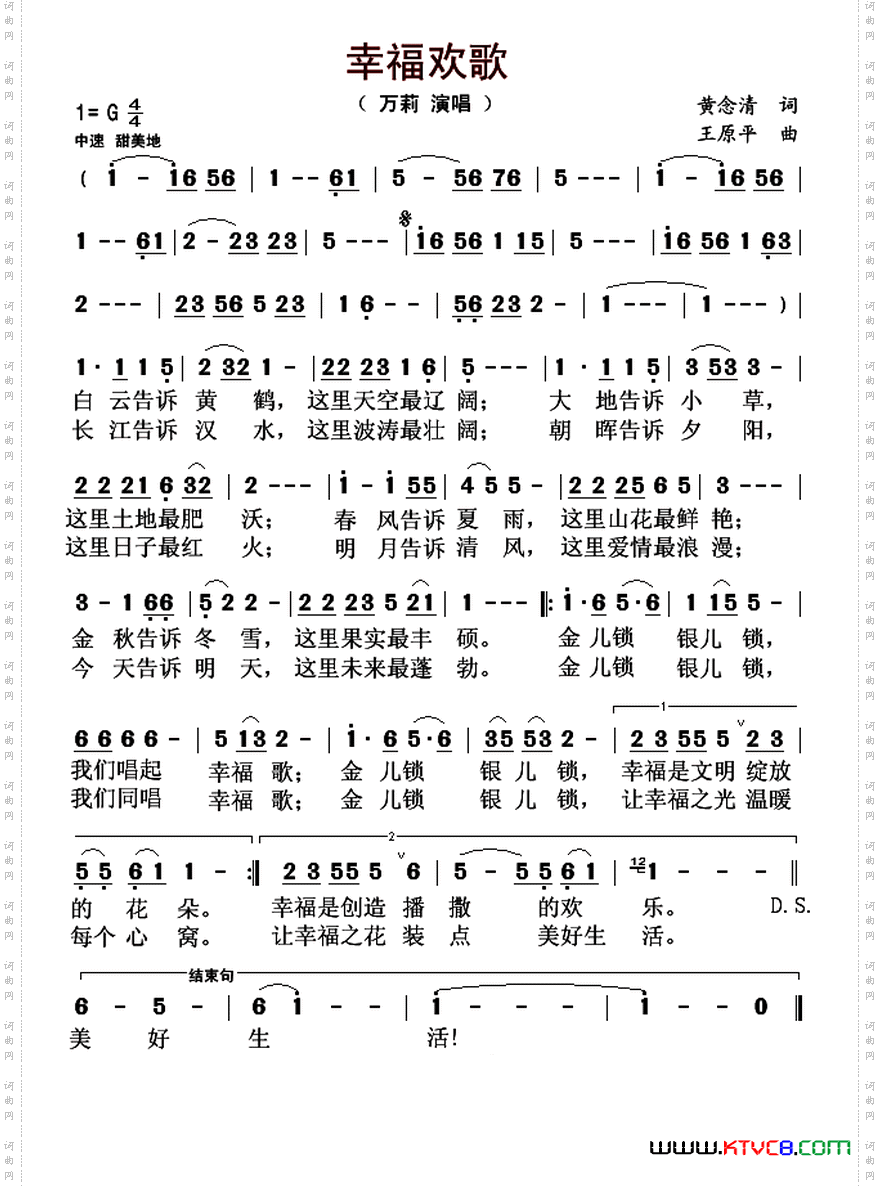 幸福欢歌
（ 万莉 演唱 ）
1= G 4/4
中速 甜美地
黄念清 词
王原平 曲
( 1 - 16 56 | 1 - - 61 | 5 - 56 76 | 5 - - - | 1 - 16 56 |
1 - - 61 | 2 - 23 23 | 5 - - - | 16 56 1 15 | 5 - - - | 16 56 1 63 |
2 - - - | 23 56 5 23 | 1 6 - - | 56 23 2 - | 1 - - - | 1 - - - ) |
1 · 1 1 5 | 2 32 1 - | 22 23 1 6 | 5 - - - | 1 · 1 1 5 | 3 53 3 - |
白 云告诉 黄 鹤， 这里天空最辽 阔； 大 地告诉 小 草，
长 江告诉 汉 水， 这里波涛最壮 阔； 朝 晖告诉 夕 阳，
2 2 21 6 32 | 2 - - - | 1 - 1 55 | 4 5 5 - | 2 2 25 6 5 | 3 - - - |
这里土地最肥 沃； 春 风告诉 夏 雨， 这里山花最鲜 艳；
这里日子最红 火； 明 月告诉 清 风， 这里爱情最浪 漫；
3 - 1 66 | 5 2 2 - | 2 2 23 5 21 | 1 - - - ‖: 1 · 6 5 · 6 | 1 15 5 - |
金 秋告诉 冬 雪， 这里果实最丰 硕。 金 儿锁 银儿 锁，
今 天告诉 明 天， 这里未来最蓬 勃。 金 儿锁 银儿 锁，
1
6 6 6 6 - | 5 13 2 - | 1 · 6 5 · 6 | 35 53 2 - | 2 3 55 5 ∨ 2 3 |
我们唱起 幸福 歌； 金 儿锁 银 儿 锁， 幸福是文明 绽放
我们同唱 幸福 歌； 金 儿锁 银 儿 锁， 让幸福之光 温暖
2
5 5 6 1 1 - :‖ 2 3 55 5 ∨ 6 | 5 - 5 5 6 1 | 12 1 - - - ‖
的 花 朵。 幸福是创造 播 撒 的欢 乐。 D.S.
每个 心 窝。 让幸福之花 装 点 美好生 活。
结束句
6 - 5 - | 6 1 - - | 1 - - - | 1 - - 0 ‖
美 好 生 活!
www.KTVC8.COM
词曲网